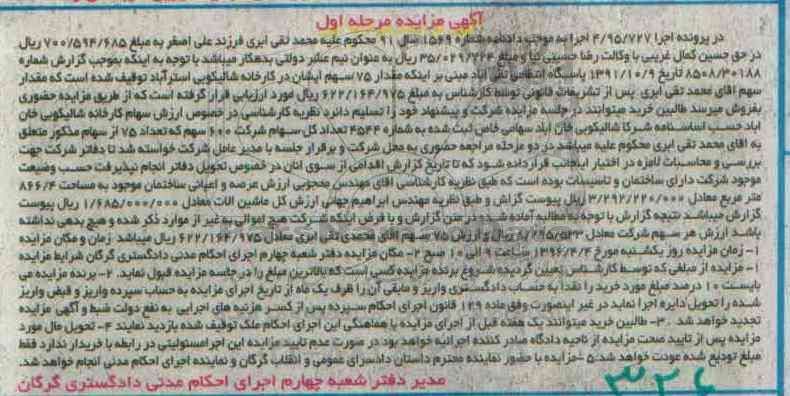 آگهی مزایده مرحله اول
در پرونده اجرا ۴/۹۵/۷۲۷ اجرا به موجب دادنامه شماره ۱۵۶۹ سال ۹۱ محکوم علیه محمد تقی ابری فرزند علی اصغر به مبلغ ۷۰۰/۵۹۴/۶۸۵ ریال
در حق حسین کمال غریبی با وکالت رضا حسینی نیا و مبلغ ۳۵/۰۲۹/۷۳۴ ریال به عنوان نیم عشر دولتی بدهکار میباشد با توجه به اینکه بموجب گزارش شماره
۸۵۰۸/۳۰۱۸۸ تاریخ ۱۳۹۱/۱۰/۹ پاسگاه انتظامی تقی آباد مبنی بر اینکه مقدار ۷۵ سهم ایشان در کارخانه شالیکوبی استرآباد توقیف شده است که مقدار
سهم آقای محمد تقی ابری پس از تشریفات قانونی توسط کارشناس به مبلغ ۶۲۲/۱۶۴/۹۷۵ ریال مورد ارزیابی قرار گرفته است که از طریق مزایده حضوری
بفروش میرسد طالبین خرید میتوانند در جلسه مزایده شرکت و پیشنهاد خود را تسلیم دارند نظریه کارشناسی در خصوص ارزش سهام کارخانه شالیکوبی خان
اباد حسب اساسنامه شرکا شالیکوبی خان آباد سهامی خاص ثبت شده به شماره ۴۵۴۴ تعداد کل سهام شرکت ۶۰۰ سهم که تعداد ۷۵ از سهام مذکور متعلق
به آقای محمد تقی ابری محکوم علیه میباشد در دو مرحله مراجعه حضوری به محل شرکت و برقرار جلسه با مدیر عامل شرکت خواسته شد تا دفاتر شرکت جهت
بررسی و محاسبات لازمه در اختیار اینجانب قرار داده شود که تا تاریخ گزارش اقدامی از سوی آنان در خصوص تحویل دفاتر انجام نپذیرفت حسب وضعیت
موجود شرکت دارای ساختمان و تاسیسات بوده است که طبق نظریه کارشناسی آقای مهندس محجوبی ارزش عرصه و اعیانی ساختمان موجود به مساحت ۸۶۶/۴
متر مربع معادل ۳/۲۹۲/۲۲۰/۰۰۰ ریال پیوست گزاش و طبق نظریه مهندس ابراهیم جهانی ارزش کل ماشین الات معادل ۱/۶۸۵/۰۰۰/۰۰۰ ریال پیوست
گزارش میباشد نتیجه گزارش با توجه به مطالبه آماده شده در متن گزارش و با فرض اینکه شرکت هیچ اموالی به غیر از موارد ذکر شده و هیچ بدهی نداشته
باشد ارزش هر سهم شرکت معادل ۸/۲۹۵/۵۳۳ ریال و ارزش ۷۵ سهم آقای محمدی تقی ابری معادل ۶۲۲/۱۶۴/۹۷۵ ریال میباشد زمان و مکان مزایده
۱- زمان مزایده روز یکشنبه مورخ ۱۳۹۶/۴/۴ ساعت ۹ الی ۱۰ صبح ۲- مکان مزایده دفتر شعبه چهارم اجرای احکام مدنی دادگستری گرگان شرایط مزایده
۱- مزایده از مبلغی که توسط کارشناس تعیین گردیده شروع برنده مزایده کسی است که بالاترین مبلغ را در جلسه مزایده قبول نماید. ۲- برنده مزایده می
بایست ۱۰ درصد مبلغ مورد خرید را نقداً به حساب دادگستری واریز و مابقی آن را ظرف یک ماه از تاریخ اجرای مزایده به حساب سپرده واریز و قبض واریز
شده را تحویل دایره اجرا نماید در غیر اینصورت وفق ماده ۱۲۹ قانون اجرای احکام سپرده پس از کسر هزینه های اجرایی به نفع دولت ضبط و آگهی مزایده
تجدید خواهد شد . ۳- طالبین خرید میتوانند یک هفته قبل از اجرای مزایده با هماهنگی این اجرای احکام ملک توقیف شده بازدید نمایند ۴- تحویل مال مورد
مزایده پس از تایید صحت مزایده از ناحیه دادگاه صادر کننده اجرائیه خواهد بود در صورت عدم تایید مزایده این اجرا مسئولیتی در رابطه با خریدار ندارد فقط
مبلغ تودیع شده عودت خواهد شد. ۵ -مزایده با حضور نماینده محترم دادستان دادسرای عمومی و انقلاب گرگان و نماینده اجرای احکام مدنی انجام خواهد شد.
مدیر دفتر شعبه چهارم اجرای احکام مدنی دادگستری گرگان